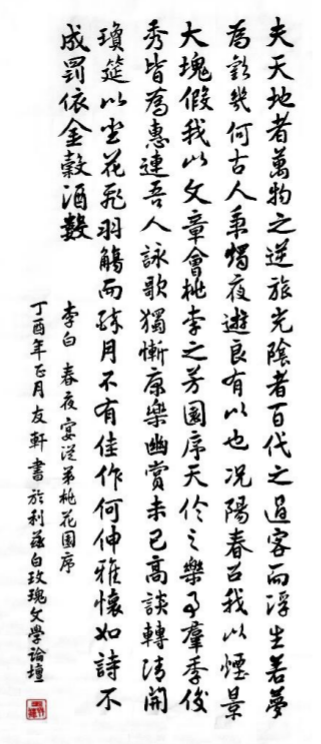 夫天地者萬物之逆旅光陰者百代之過客而浮生若夢
為歡幾何古人秉燭夜遊良有以也况陽春召我以煙景
大塊假我以文章會桃李之芳園序天伦之樂事羣季俊
秀皆為惠連吾人詠歌獨慚康樂幽賞未已高談轉清開
瓊筵以坐花飛羽觴而醉月不有佳作何伸雅懷如詩不
成罰依金穀酒數
李白 春夜宴從弟桃花園序
丁酉年正月友軒書於利茲白玫瑰文學論壇